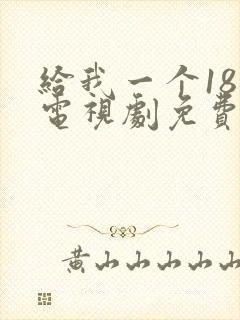 給我一个18
電視劇免費
黄山山山山山